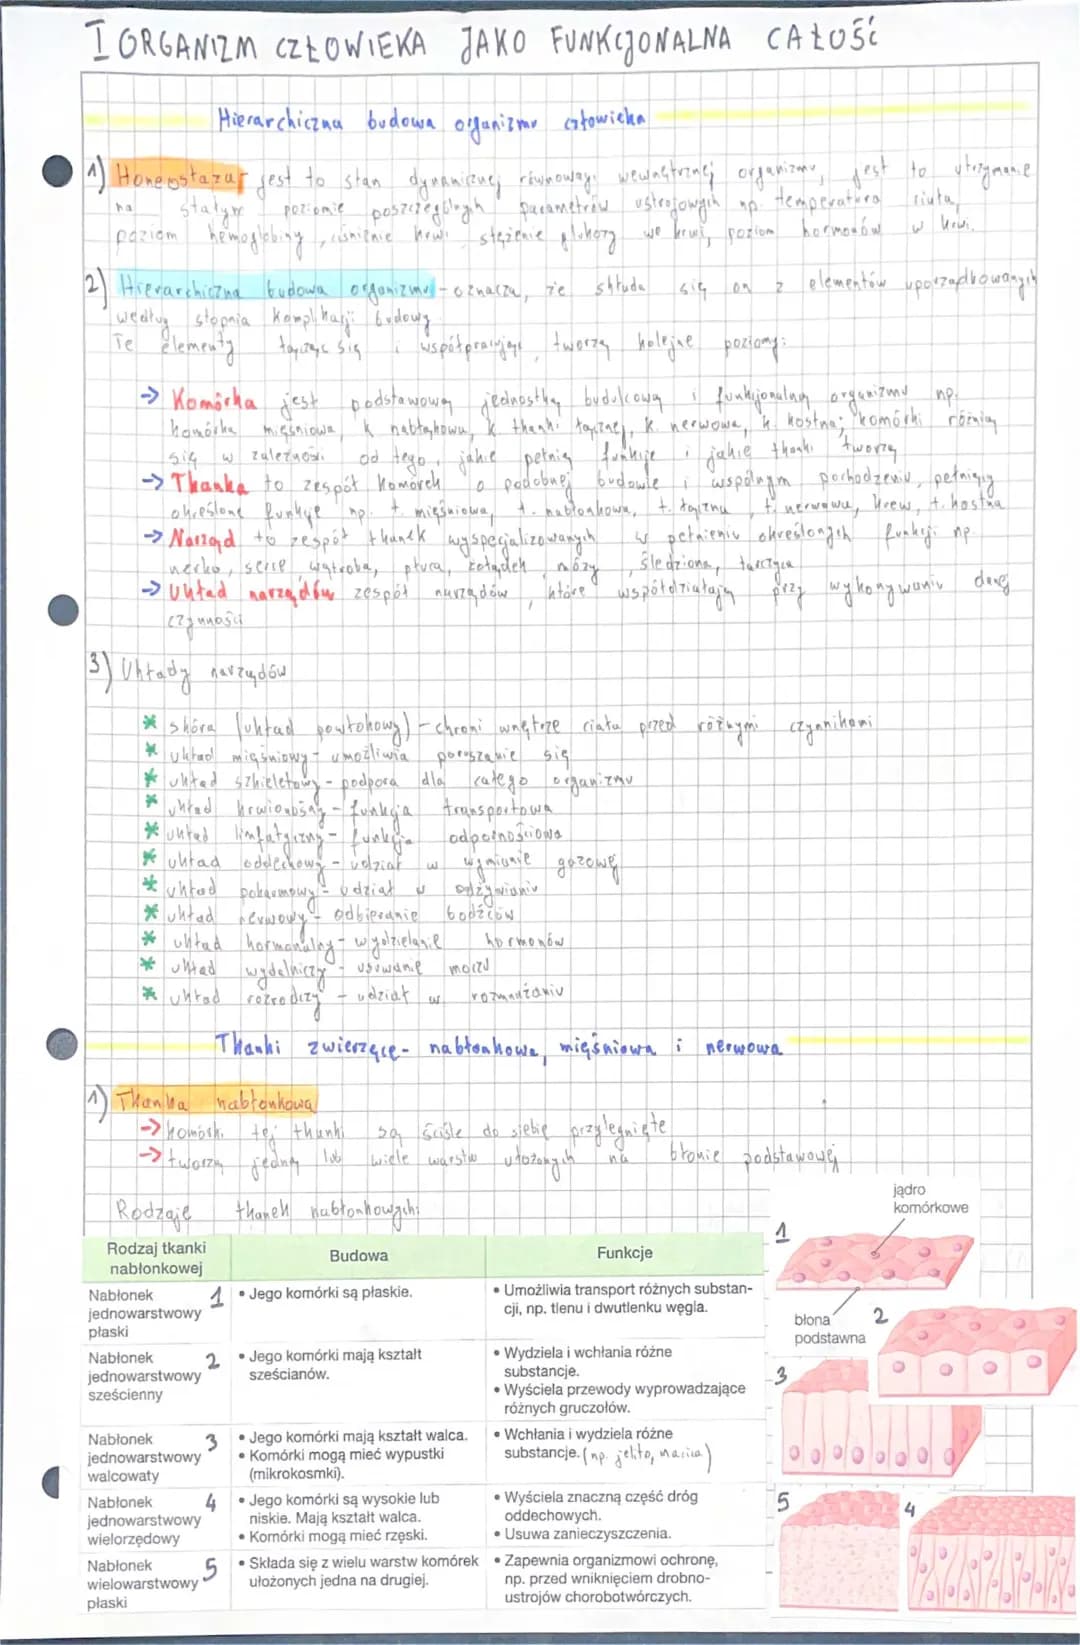 I ORGANIZM CZŁOWIEKA JAKO FUNKCJONALNA CAŁOŚĆ
Hierarchiczna budowa organizmu człowieka
1) Homeostaza jest to stan dynamicznej równowagi wewnętrznej organizmu, jest to utrzymanie
na stałym poziomie poszczególnych parametrów ustrojowych np. temperatura ciała,
poziom hemoglobiny, ciśnienie krwi stężenie glukozy we krwi, poziom hormonów w krwi.
2) Hierarchiczna budowa organizmu - oznacza, że składa się on z elementów uporządkowanych
według stopnia komplikacji budowy
Te elementy łącząc się i współpracując, tworzą kolejne poziomy:
→ Komórka jest podstawową jednostką budulcową i funkcjonalną organizmu np.
komórka mięśniowa, k nabłąkowa, k tkanki łącznej, k. nerwowa, k. kostna; komórki różnią
się w zależności od tego, jakie pełnią funkcje i jakie tkanki tworzą
→ Tkanka to zespół komórek o podobnej budowie i wspólnym pochodzeniu, pełniący
określone funkcje np. t. mięśniowa, t. nabłonkowa, t. łączna, t. nerwowa, krew, t. kostna
→ Narząd to zespół tkanek wyspecjalizowanych w pełnieniu określonych funkcji np.
nerka, serce wątroba, płuca, żołądek, mózg, śledziona, tarczyca
→ Układ narządów zespół narządów, które współdziałają przy wykonywaniu danej
czynności
3) Układy narządów
* skóra (układ powłokowy) - chroni wnętrze ciała przed różnymi czynnikami
* układ mięśniowy - umożliwia poruszanie się
* układ szkieletowy - podpora dla całego organizmu
* układ krwionośny - funkcja transportowa
* układ limfatyczny - funkcja odpornościowa
* układ oddechowy - udział w wymianie gazowej
* układ pokarmowy - udział w odżywianiu
* układ nerwowy - odbieranie bodźców
* układ hormonalny - wydzielanie hormonów
* układ wydalniczy - usuwanie moczu
* układ rozrodczy - udział w rozmnażaniu
Tkanki zwierzęce - nabłonkowa, mięśniowa i nerwowa
1) Tkanka nabłonkowa
→ komórki tej tkanki są ściśle do siebie przylegnięte
→ tworzą jedną lub wiele warstw ułożonych na błonie podstawowej
Rodzaje tkanek nabłonkowych:
Rodzaj tkanki nabłonkowej
Budowa
Funkcje
Nabłonek jednowarstwowy płaski 1
• Jego komórki są płaskie.
• Umożliwia transport różnych substan-
cji, np. tlenu i dwutlenku węgla.
Nabłonek jednowarstwowy sześcienny 2
• Jego komórki mają kształt
sześcianów.
• Wydziela i wchłania różne
substancje.
• Wyściela przewody wyprowadzające
różnych gruczołów.
Nabłonek jednowarstwowy walcowaty 3
• Jego komórki mają kształt walca.
• Komórki mogą mieć wypustki
(mikrokosmki).
• Wchłania i wydziela różne
substancje. (np. jelito, macica)
Nabłonek jednowarstwowy wielorzędowy 4
• Jego komórki są wysokie lub
niskie. Mają kształt walca.
• Komórki mogą mieć rzęski.
• Wyściela znaczną część dróg
oddechowych.
• Usuwa zanieczyszczenia.
Nabłonek wielowarstwowy płaski 5
• Składa się z wielu warstw komórek
ułożonych jedna na drugiej.
• Zapewnia organizmowi ochronę,
np. przed wniknięciem drobno-
ustrojów chorobotwórczych.
jądro
komórkowe
1
błona
podstawna
2
3
5
4